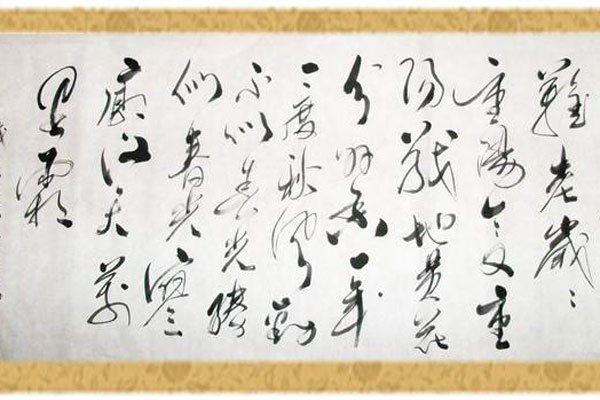 難老歲〻
重陽今又重
陽戰地黃花
分外香一年
一度秋風勁
不似春光勝
似春光寥
廓江天萬
里霜